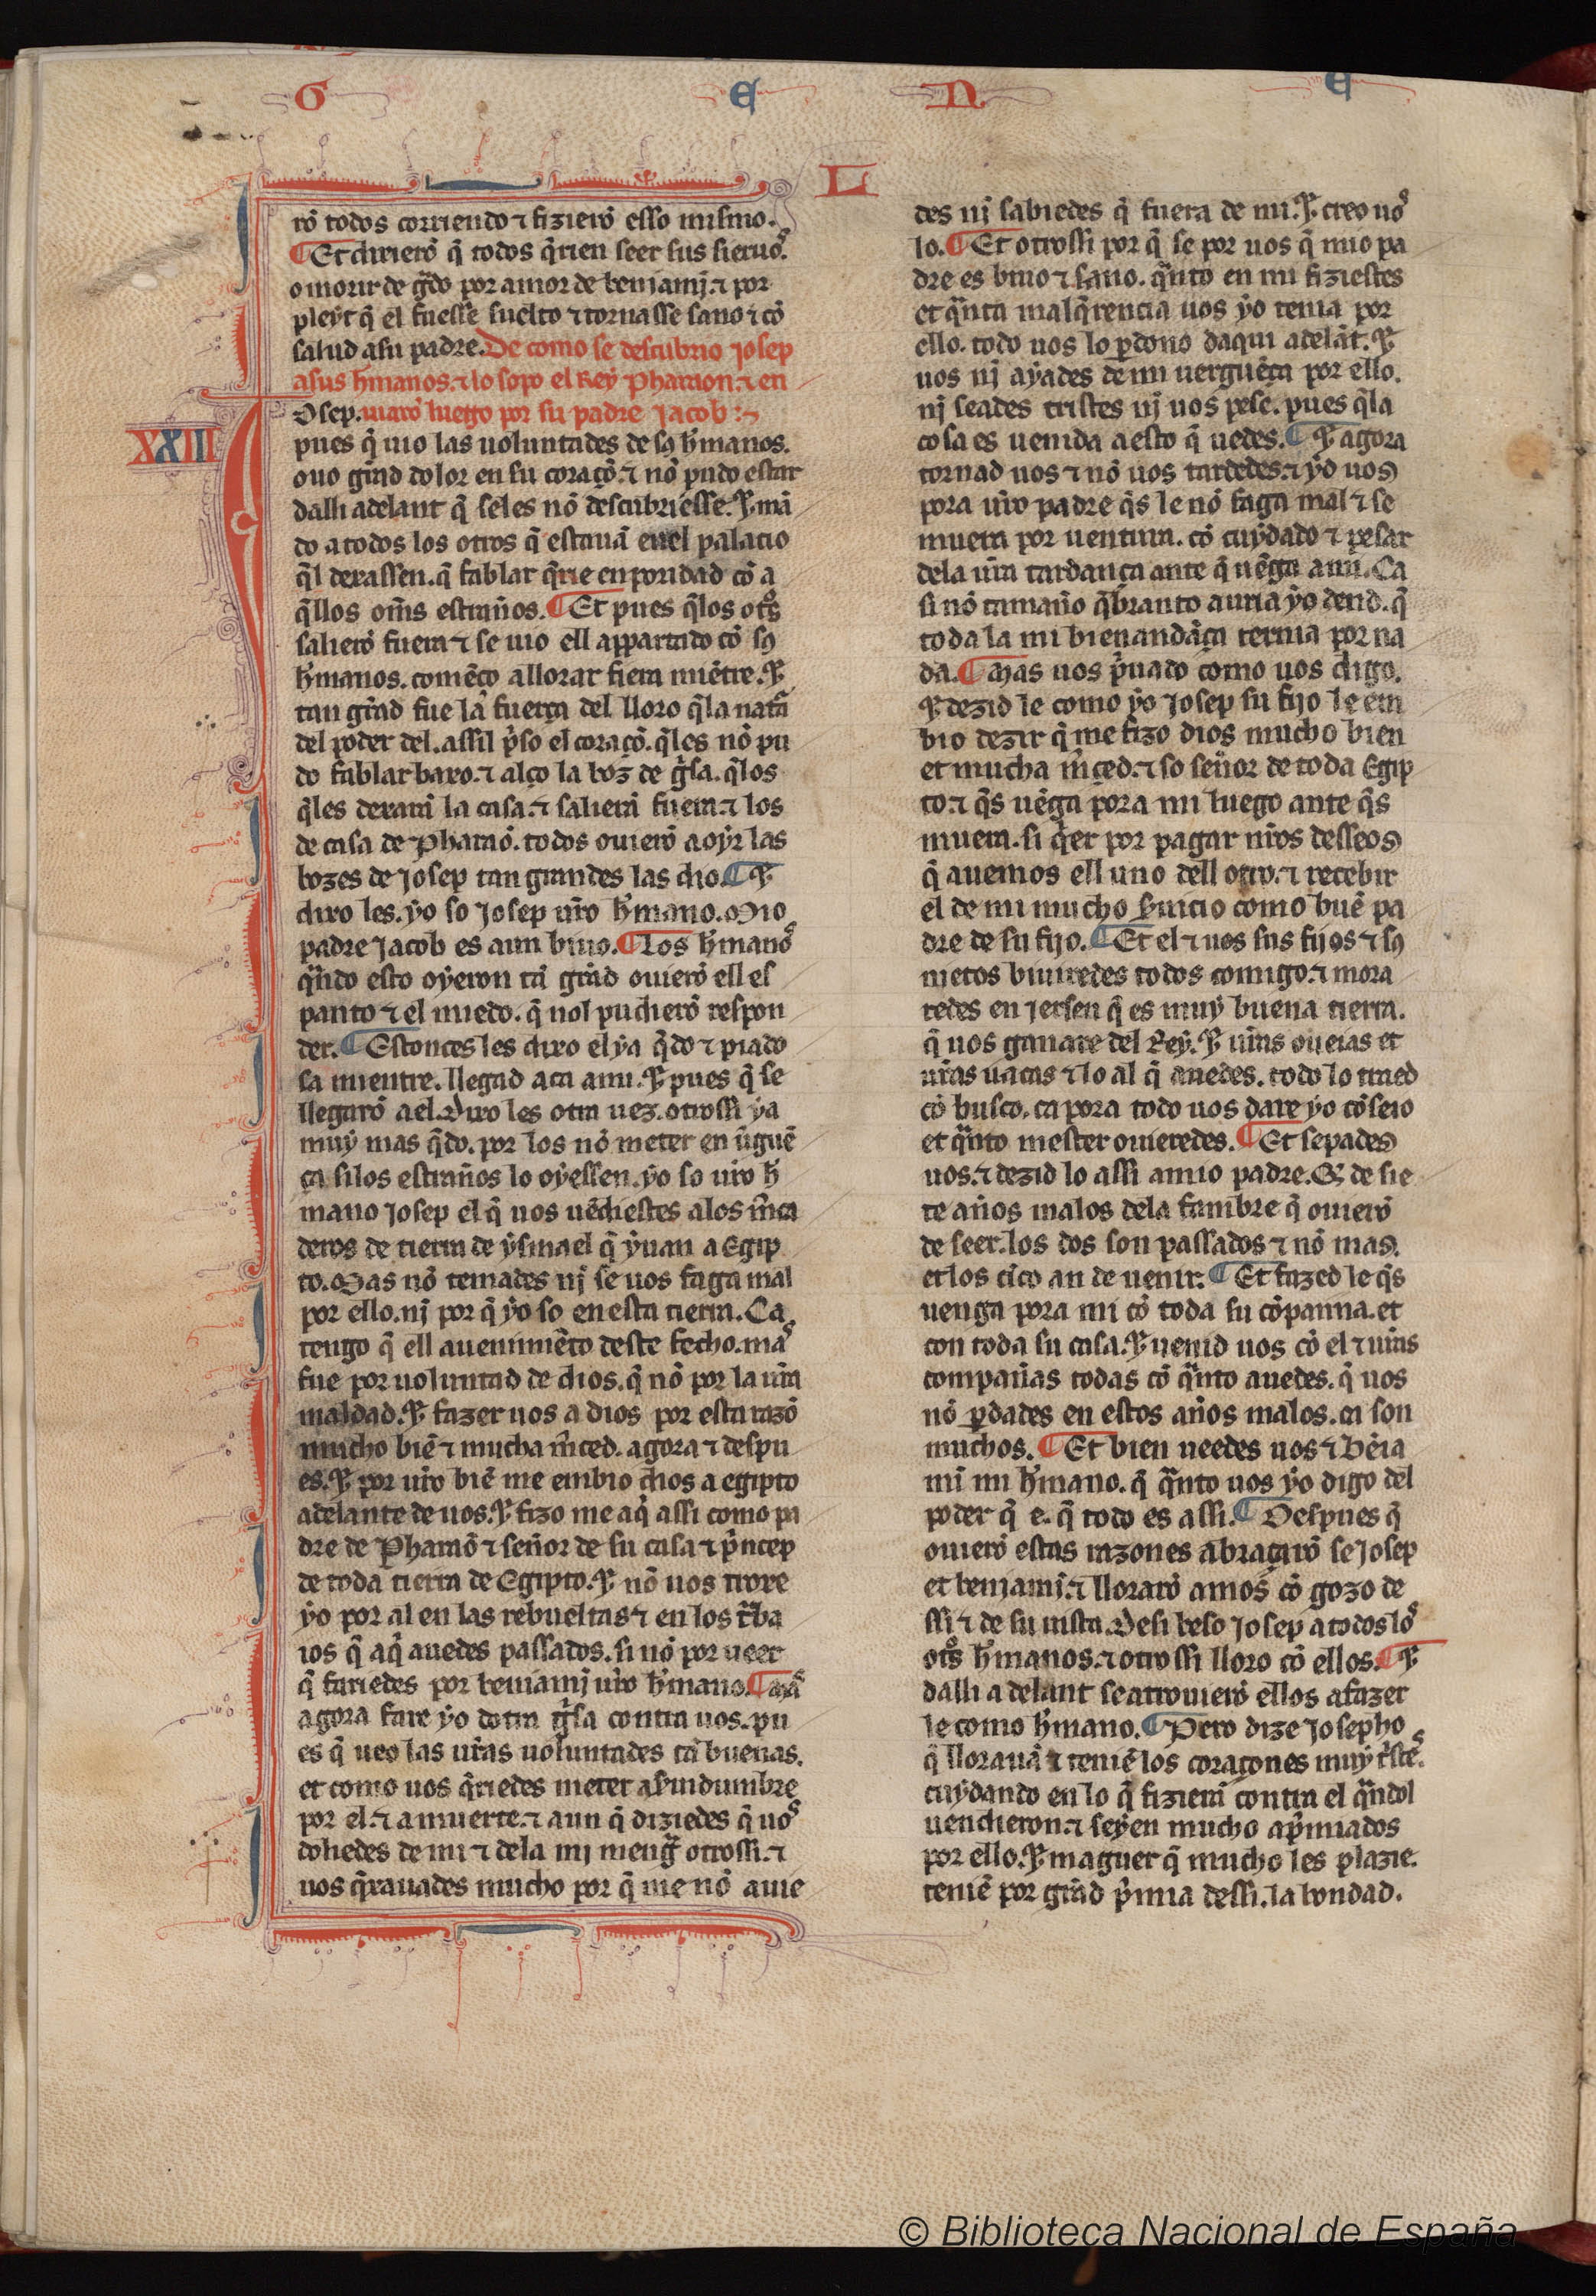 G E N E
L
rõ todos corriendo ⁊ fizierõ esso mismo.
¶Et dixierõ q̃ todos q̃rien seer sus sieruos.
o morir de g̃do por amor de beniamĩ. ⁊ por
pleyt q̃ el fuesse suelto ⁊ tornasse sano ⁊ cõ
salud asu padre. De como se descubrio Josep
asus h̃manos. ⁊ lo sopo el Rey Pharaon. ⁊ en
Osep. uiarõ luego por su padre Jacob :~
XXIII
pues q̃ uio las uoluntades de sꝯ h̃manos.
ouo grãd dolor en su coraçõ. ⁊ nõ pudo estar
dalli adelant q̃ seles nõ descubriesse. ⁊ mã
do a todos los otros q̃ estauã enel palacio
q̃l dexassen. q̃ fablar q̃rie en poridad cõ a
q̃llos om̃s estraños. ¶Et pues q̃los ot̃s
salierõ fuera ⁊ se uio ell appartado cõ sꝯ
h̃manos. comẽço allorar fiera miẽtre. ⁊
tan grãd fue la fuerça del lloro q̃la nat̃a
del poder del. assil p̃so el coraçõ. q̃les nõ pu
do fablar baxo. ⁊ alço la boz de g̃sa. q̃los
q̃les dexarã la casa. ⁊ salierã fuera. ⁊ los
de casa de Pharaõ. todos ouierõ a oyr las
bozes de Josep tan grandes las dio. ¶ ⁊
dixo les. yo so Josep ur̃o h̃mano. Mio
padre Jacob es aun biuo. ¶Los h̃manos
q̃ndo esto oyeron tã grãd ouierõ ell es
panto ⁊ el miedo. q̃ nol pudierõ respon
der. ¶Estonces les dixo el ya q̃do ⁊ piado
sa mientre. llegad aca ami. ⁊ pues q̃ se
llegarõ a el. Dixo les otra uez. otrossi ya
muy mas q̃do. por los nõ meter en ũguẽ
ça silos estraños lo oyessen. yo so ur̃o h̃
mano Josep el q̃ uos uẽdiestes alos m̃ca
deros de tierra de ysmael q̃ yuan a Egip
to. Mas nõ temades nĩ se uos faga mal
por ello. nĩ por q̃ yo so en esta tierra. Ca
tengo q̃ ell auenimiẽto deste fecho. mas
fue por uoluntad de dios. q̃ nõ por la ur̃a
maldad. ⁊ fazer uos a dios por esta razõ
mucho biẽ ⁊ mucha m̃ced. agora ⁊ despu
es. ⁊ por ur̃o biẽ me embio dios a egipto
adelante de uos. ⁊ fizo me aq̃ assi como pa
dre de Pharaõ ⁊ señor de su casa ⁊ p̃ncep
de toda tierra de Egipto. ⁊ nõ uos troxe
yo por al en las rebueltas ⁊ en los t̃ba
ios q̃ aq̃ auedes passados. si nõ por ueer
q̃ fariedes por beniamĩ ur̃o h̃mano. ¶Mas
agora fare yo dotra g̃sa contra uos. pu
es q̃ ueo las ur̃as uoluntades tã buenas.
et como uos q̃riedes meter a s̃uidumbre
por el. ⁊ a muerte. ⁊ aun q̃ diziedes q̃ uos
doliedes de mi ⁊ dela mj meng̃ otrossi. ⁊
uos q̃xauades mucho por q̃ me nõ auie
des nj sabiedes q̃ fuera de mi. ⁊ creo uos
lo. ¶Et otrossi por q̃ se por uos q̃ mio pa
dre es biuo ⁊ sano. q̃nto en mi fiziestes
et q̃nta malq̃rencia uos yo tenia por
ello. todo uos lo ꝑdono daqui adelãt. ⁊
uos nj ayades de mi uerguẽça por ello.
nj seades tristes nj uos pese. pues q̃la
cosa es uenida a esto q̃ uedes. ¶ ⁊ agora
tornad uos ⁊ nõ uos tardedes. ⁊ yd uos
pora ur̃o padre q̃s le nõ faga mal ⁊ se
muera por uentura. cõ cuydado ⁊ pesar
dela ur̃a tardança ante q̃ uẽga ami. Ca
si nõ tamaño q̃branto auria yo dend. q̃
toda la mi bienandãça ternia por na
da. ¶Mas uos p̃uado como uos digo.
⁊ dezid le como yo Josep su fijo le em
bio dezir q̃ me fizo dios mucho bien
et mucha m̃ced. ⁊ so señor de toda Egip
to. ⁊ q̃s uẽga pora mi luego ante q̃s
muera. si q̃er por pagar nr̃os desseos
q̃ auemos ell uno dell otro. ⁊ recebir
el de mi mucho s̃uicio como buẽ pa
dre de su fijo. ¶Et el ⁊ uos sus fijos ⁊ sꝯ
nietos biuiredes todos comigo. ⁊ mora
redes en Jersen q̃ es muy buena tierra.
q̃ uos ganare del Rey. ⁊ ur̃as oueias et
ur̃as uacas ⁊ lo al q̃ auedes. todo lo traed
cõ busco. ca pora todo uos dare yo cõseio
et q̃nto mester ouieredes. ¶Et sepades
uos. ⁊ dezid lo assi amio padre. Q̃ de sie
te años malos dela fambre q̃ ouierõ
de seer. los dos son passados ⁊ nõ mas.
et los cĩco an de uenir. ¶Et fazed le q̃s
uenga pora mi cõ toda su cõpanna. et
con toda su casa. ⁊ uenid uos cõ el ⁊ ur̃as
compañas todas cõ q̃nto auedes. q̃ uos
nõ ꝑdades en estos años malos. ca son
muchos. ¶Et bien ueedes uos ⁊ bẽia
mĩ mi h̃mano. q̃ q̃nto uos yo digo del
poder q̃ e. q̃ todo es assi. ¶Despues q̃
ouierõ estas razones abraçarõ se Josep
et beniamĩ. ⁊ llorarõ amos cõ gozo de
ssi ⁊ de su uista. Desi beso Josep a todos los
ot̃s h̃manos. ⁊ otrossi lloro cõ ellos. ¶ ⁊
dalli adelant se atrouierõ ellos a fazer
le como h̃mano. ¶Pero dize Josepho
q̃ llorauã ⁊ teniẽ los coraçones muy t̃stes.
cuydando en lo q̃ fizierã contra el q̃ndol
uendieron. ⁊ seyen mucho ap̃miados
por ello. ⁊ maguer q̃ mucho les plazie.
teniẽ por grãd p̃mia dessi. la bondad.
© Biblioteca Nacional de España